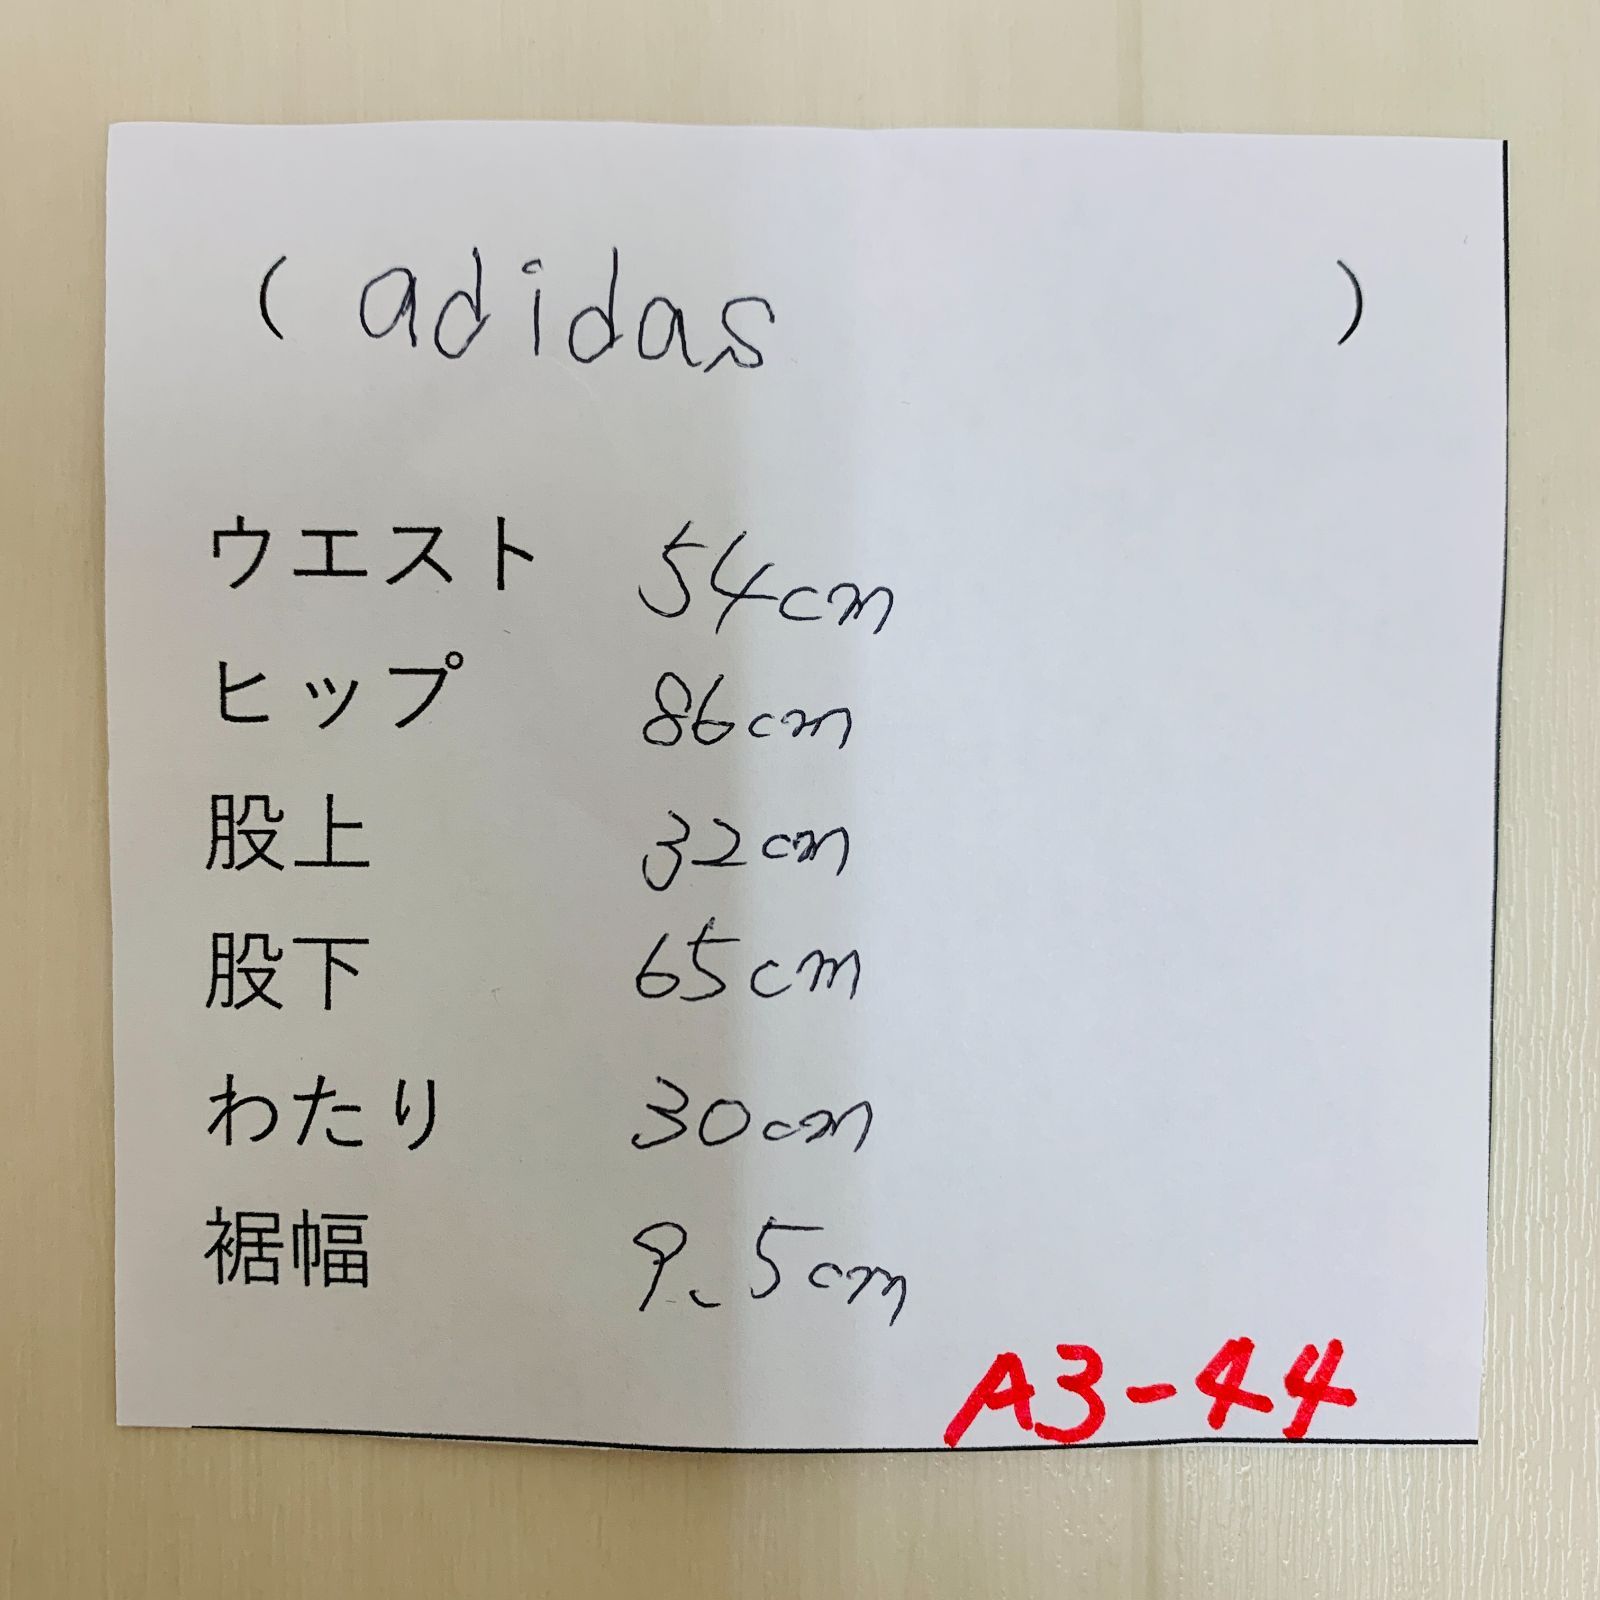 ( adidas )
ウエスト 54cm
ヒップ 86cm
股上 32cm
股下 65cm
わたり 30cm
裾幅 9.5cm
A3-44